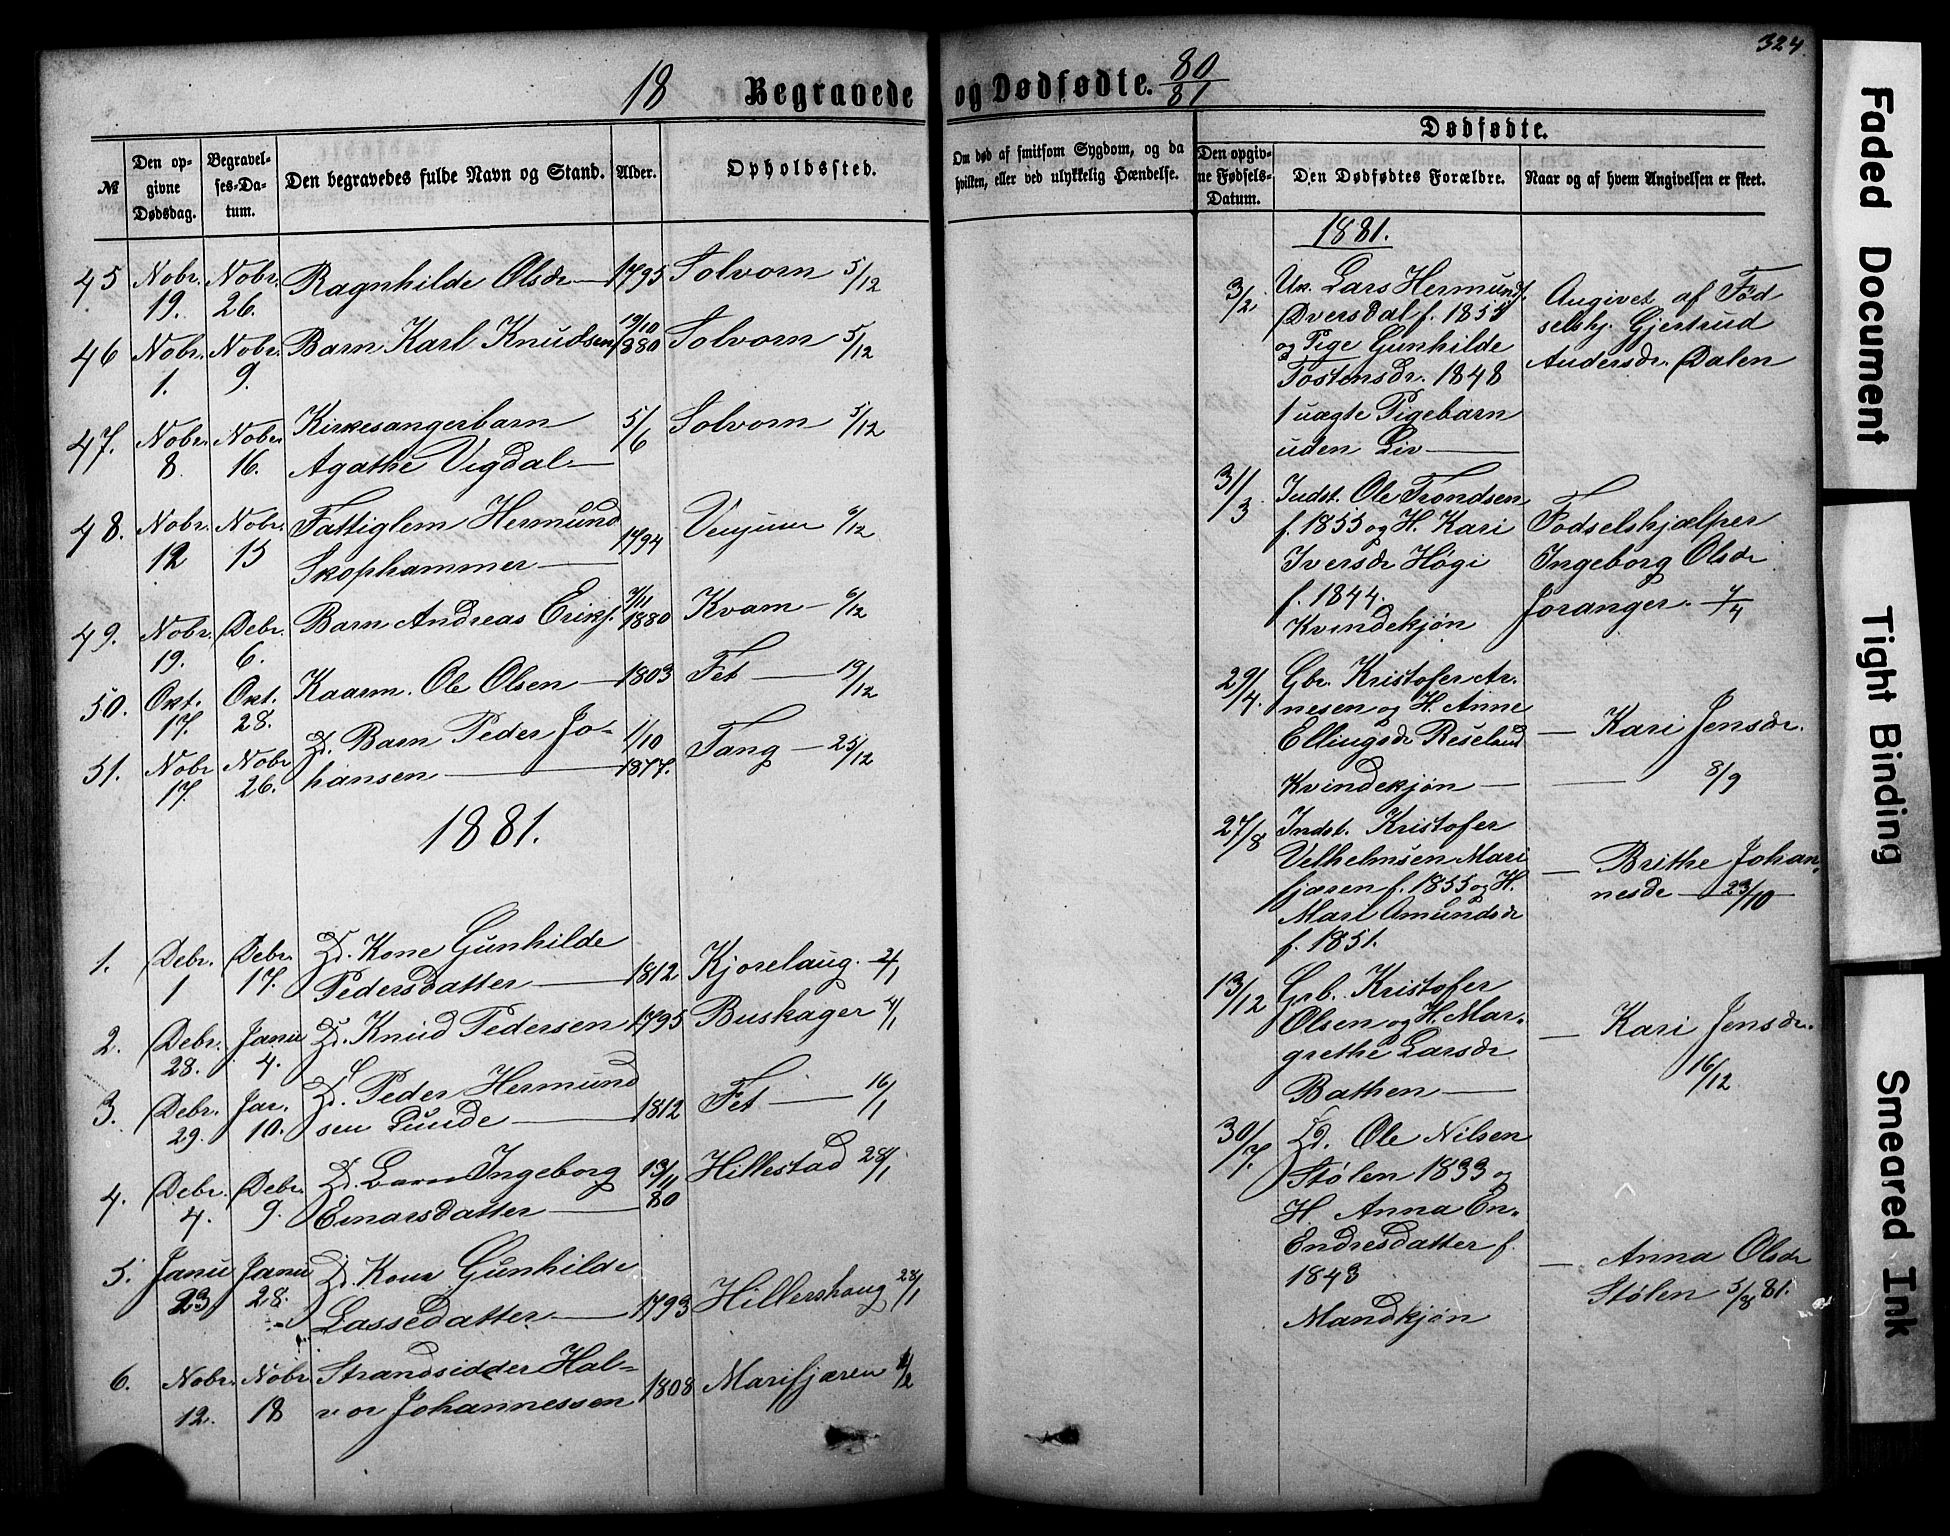 324.
18 Begravede og Dødfødte. 80/81
№
Den opgivne Dødsdag.
Begravelses-Datum.
Den begravedes fulde Navn og Stand.
Alder.
Opholdssted.
Om død af smitsom Sygdom, og da
hvilken, eller ved ulykkelig Hændelse.
Dødfødte.
Den opgivne Fødsels-Datum.
Den Dødfødtes Forældre.
Naar og af hvem Angivelsen er skeet.
45 Nobr. 19. Nobr. 26. Ragnhilde Olsdr 1795 Solvorn 5/12
46 Nobr. 1. Nobr. 9. Barn Karl Knudsen 19/10 1880 Solvorn 5/12
47. Nobr. 8. Nobr. 16. Kirkesangerbarn
Agathe Vigdal 5/6 Solvorn 5/12
48. Nobr. 12 Nobr. 15 Fattiglem Hermund
Skophammer 1794 Venjum 6/12
49. Nobr. 19. Debr. 6. Barn Andreas Eriks. 1880 Kvam 6/12
50. Okt. 17. Okt. 28. Kaarm. Ole Olsen 1803 Fet 19/12
51. Nobr 17. Nobr 26. Id. Barn Peder Jo-
hansen 1/10 1877. Tang 25/12
1881.
1. Debr. 1 Debr. 17. Id. Kone Gunhilde
Pedersdatter 1812 Kjørelaug. 2/1
2. Debr. 28. Janu 4. Id. Knud Pedersen 1795 Buskager 4/1
3. Debr. 29. Jar. 10. Id. Peder Hermund
sen Lunde 1812 Fet 16/1
4. Debr. 4. Debr. 9. Id. Barn Ingeborg
Einarsdatter 13/11 80 Hillestad 28/1
5. Janu 23. Janu 28. Id. Kone Gunhilde
Lassedatter 1793 Hillershaug 28/1
6. Nobr. 12. Nobr. 18 Strandsidder Hal-
vor Johannessen 1808 Marifjæren
1881.
3/2 Un. Lars Hermunds.
Dversdal f. 1855
og Pige Gunhilde
Tostensdr. 1848
1 uægte Pigebarn
uden Liv
Angivet af Fød
selshj. Gjertrud
Andersdr. Dalen
31/3 Indst. Ole Trondsen
f. 1855 og H. Kari
Iversdr Høgi
f. 1844.
Kvindekjøn
Fødselshjælper
Ingeborg Olsdr
Joranger. 7/4
29/4 Gbr. Kristofer Ar-
nesen og H. Anne
Ellingsdr Røseland
Kvindekjøn
— Kari Jensdr.
— 8/9
27/8 Indst. Kristofer
Velhelmsen Mari
fjæren f. 1855 og H.
Mari Amundsdr
f. 1851.
— Brithe Johan-
nesdr 23/10
13/12 Grb. Kristofer
Olsen og H. Mar-
grethe Larsdr
Bathen
— Kari Jensdr.
16/12
30/7. Id. Ole Nilsen
Stølen 1833 og
H Anna En-
Endresdatter f.
1843
Mandkjøn
— Anna Olsdr
Stølen 5/8 81.
Faded Document
Tight Binding
Smeared Ink